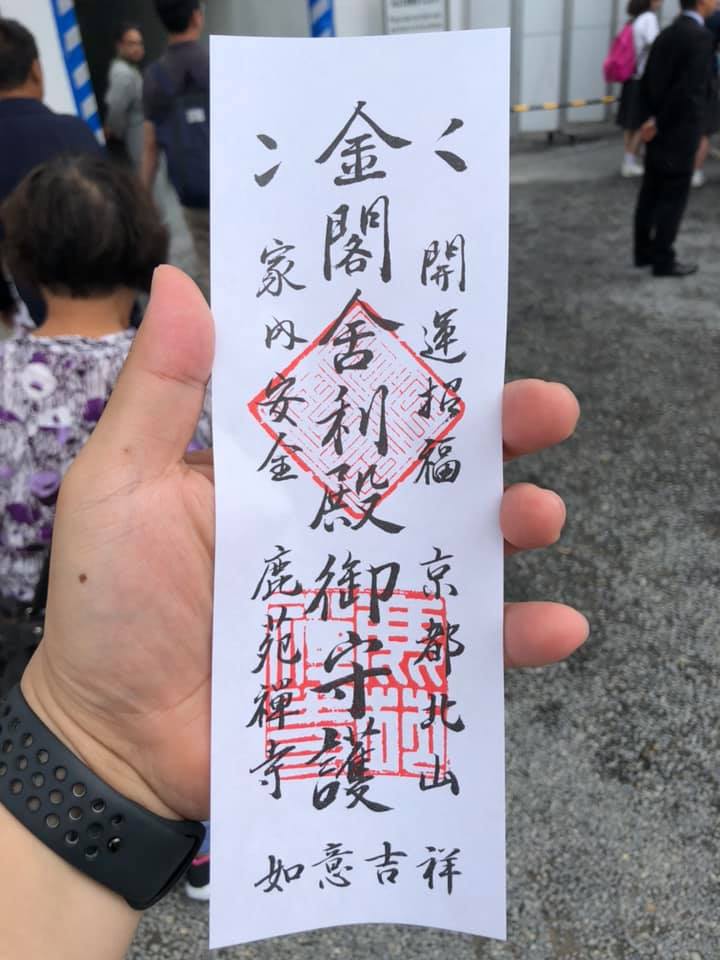 開運招福 京都北山
金閣舎利殿御守護
家内安全 鹿苑禅寺
祥吉意如